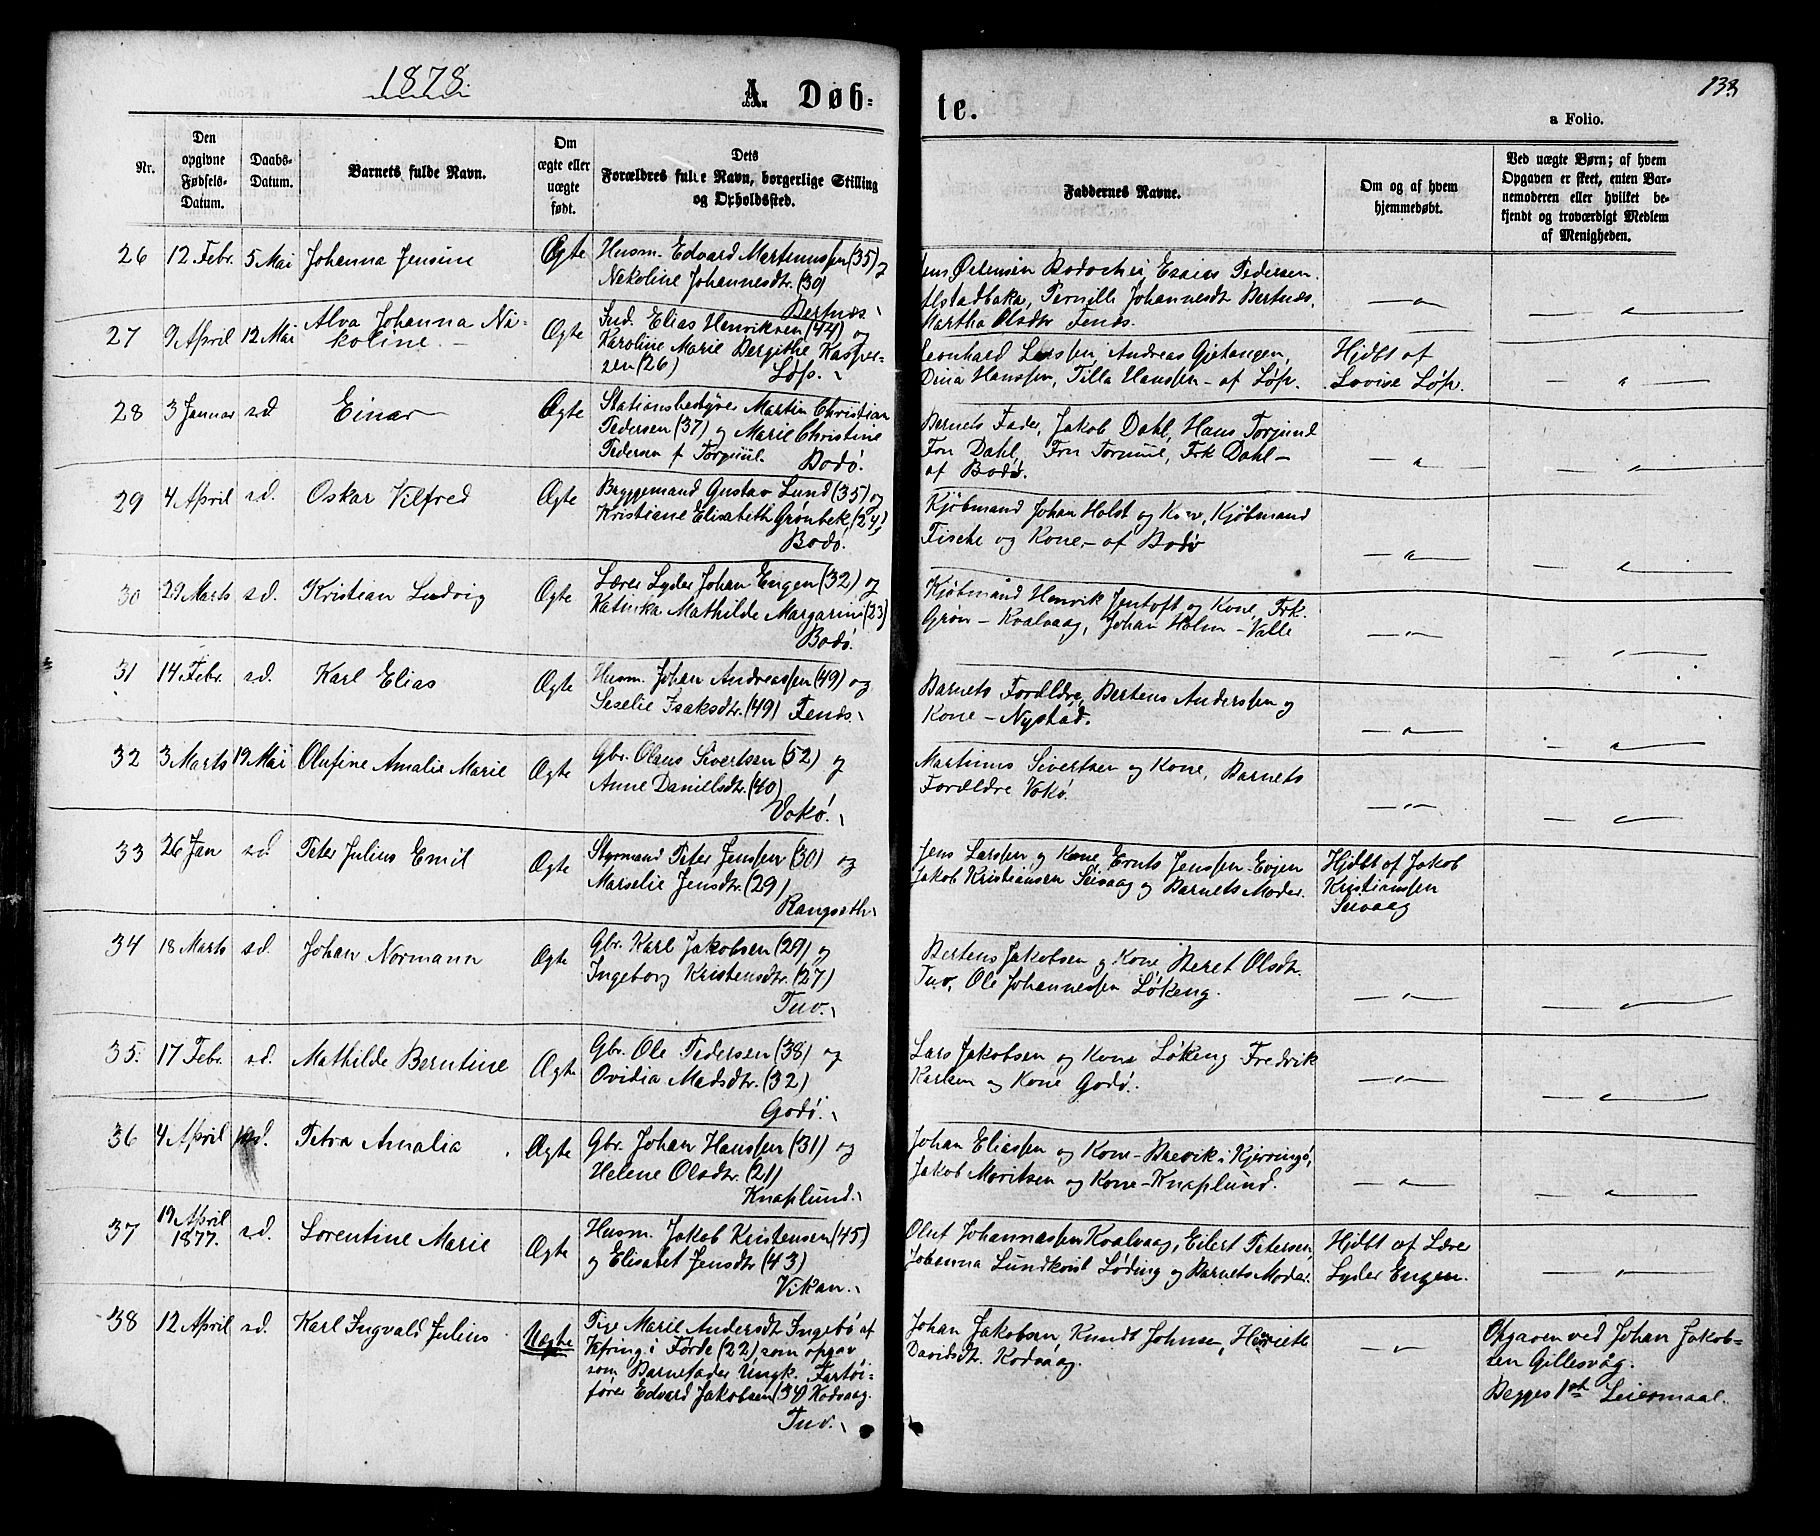 1878.
A Døb-
te.
138
a Folio.
Nr.
Den opgivne Fødsels-Datum.
Daabs-Datum.
Barnets fulde Navn.
Om ægte eller uægte født.
Dets Forældres fulde Navn, borgerlige Stilling og Opholdssted.
Faddernes Navne.
Om og af hvem hjemmedøbt.
Ved uægte Børn; af hvem Opgaven er skeet, enten Barnemoderen eller hvilket bekjendt og troværdigt Medlem af Menigheden.
26 12 Febr. 5 Mai Johanna Jensine Ægte Husm. Edvard Martinussen (35) og
Nikoline Johannesdtr. (30)
Bertnæs.
Jens Østensen Bodøsjø Esaias Pedersen
Alstadbakk, Pernille Johannesdt Bertnæs,
Martha Olsdtr Fenæs.
27 9 April 12 Mai Alva Johanna Ni-
koline. Ægte Ind. Elias Henriksen (44) og
Karoline Marie Bergithe Kasper-
sen (26)
Løp.
Leonhard Larssen, Andreas Gjetangen,
Dina Hanssen, Tilla Hanssen - af Løp.
Hjdbt af
Lovise Løp.
28 3 Januar s.d. Einar Ægte Stationsbestyrer Martin Christian
Pedersen (37) og Marie Christine
Pedersen f Torjuul.
Bodø.
Barnets Fader, Jakob Dahl, Hans Torjuul
Fru Dahl, Fru Torjuul, Frk Dahl -
af Bodø.
29 4 April s.d. Oskar Vilfred Ægte Bryggemand Gustav Lund (35) og
Kristiane Elisabeth Grønbek, (24)
Bodø.
Kjøbmand Johan Holst og Kone, Kjøbmand
Fische og Kone, - af Bodø
30 29 Marts s.d. Kristian Ludvig Ægte Lærer Lyder Johan Engen (32) og
Katinka Mathilde Margarine (23)
Bodø.
Kjøbmand Henrik Jentoft og Kone, Frk.
Grøn - Kvalvaag, Johan Holm - Valle
31 14 Febr. s.d. Karl Elias Ægte Husm. Johan Andreassen (49) og
Seselie Isaksdtr. (49) Fenæs.
Barnets Forældre, Bertens Anderssen og
Kone - Nystad.
32 3 Marts 19 Mai Olufine Amalie Marie Ægte Gbr. Olaus Sivertsen (52) og
Anne Danielsdtr. (40)
Vokø.
Martinus Sivertsen og Kone, Barnets
Forældre Vokø.
33 26 Jan s.d. Peter Julius Emil Ægte Styrmand Peter Jenssen (30) og
Marselie Jensdtr. (29)
Rangseth.
Jens Larssen og Kone, Ernts Jenssen Evjen
Jakob Kristiansen Seivaag og Barnets Moder.
Hjdbt af Jakob
Kristianssen
Seivaag
34 18 Marts s.d. Johan Normann Ægte Gbr. Karl Jakobsen (29) og
Ingeborg Kristensdtr. (27)
Tuv.
Bertens Jakobsen og Kone, Beret Olsdtr.
Tuv, Ole Johannessen Løkeng.
35. 17 Febr. s.d. Mathilde Berntine Ægte Gbr. Ole Pedersen (38) og
Ovidia Madsdtr. (32)
Godø.
Lars Jakobsen og Kone Løkeng Fredrik
Karlsen og Kone Godø.
36 4 April s.d. Petra Amalia Ægte Gbr. Johan Hanssen (31) og
Helene Olsdtr. (21)
Knaplund.
Johan Eliassen og Kone - Brevik i Kjerringø,
Jakob Moritsen og Kone - Knaplund.
37 19 April
1877. s.d. Lorentine Marie Ægte Husm. Jakob Kristensen (45)
og Elisabet Jensdtr (43)
Vikan.
Oluf Johannessen Kvalvaag, Eilert Petersen,
Johanna Lundkvist Løding og Barnets Moder.
Hjdbt af Lærer
Lyder Engen.
38 12 April s.d. Karl Ingvald Julius Uægte Pige Marie Andersdtr Ingebø af
i Førde (22) som opgav
som Barnefader Ungk. Fartøi-
fører Edvard Jakobsen (34) Kodvaag.
Tuv.
Johan Jakobsen, Knudt Johnsen, Henriette
Davidsdtr. Kodvaag.
Opgaven ved Johan Jakob-
sen Gillesvåg.
Begges 1st Leiermaal.